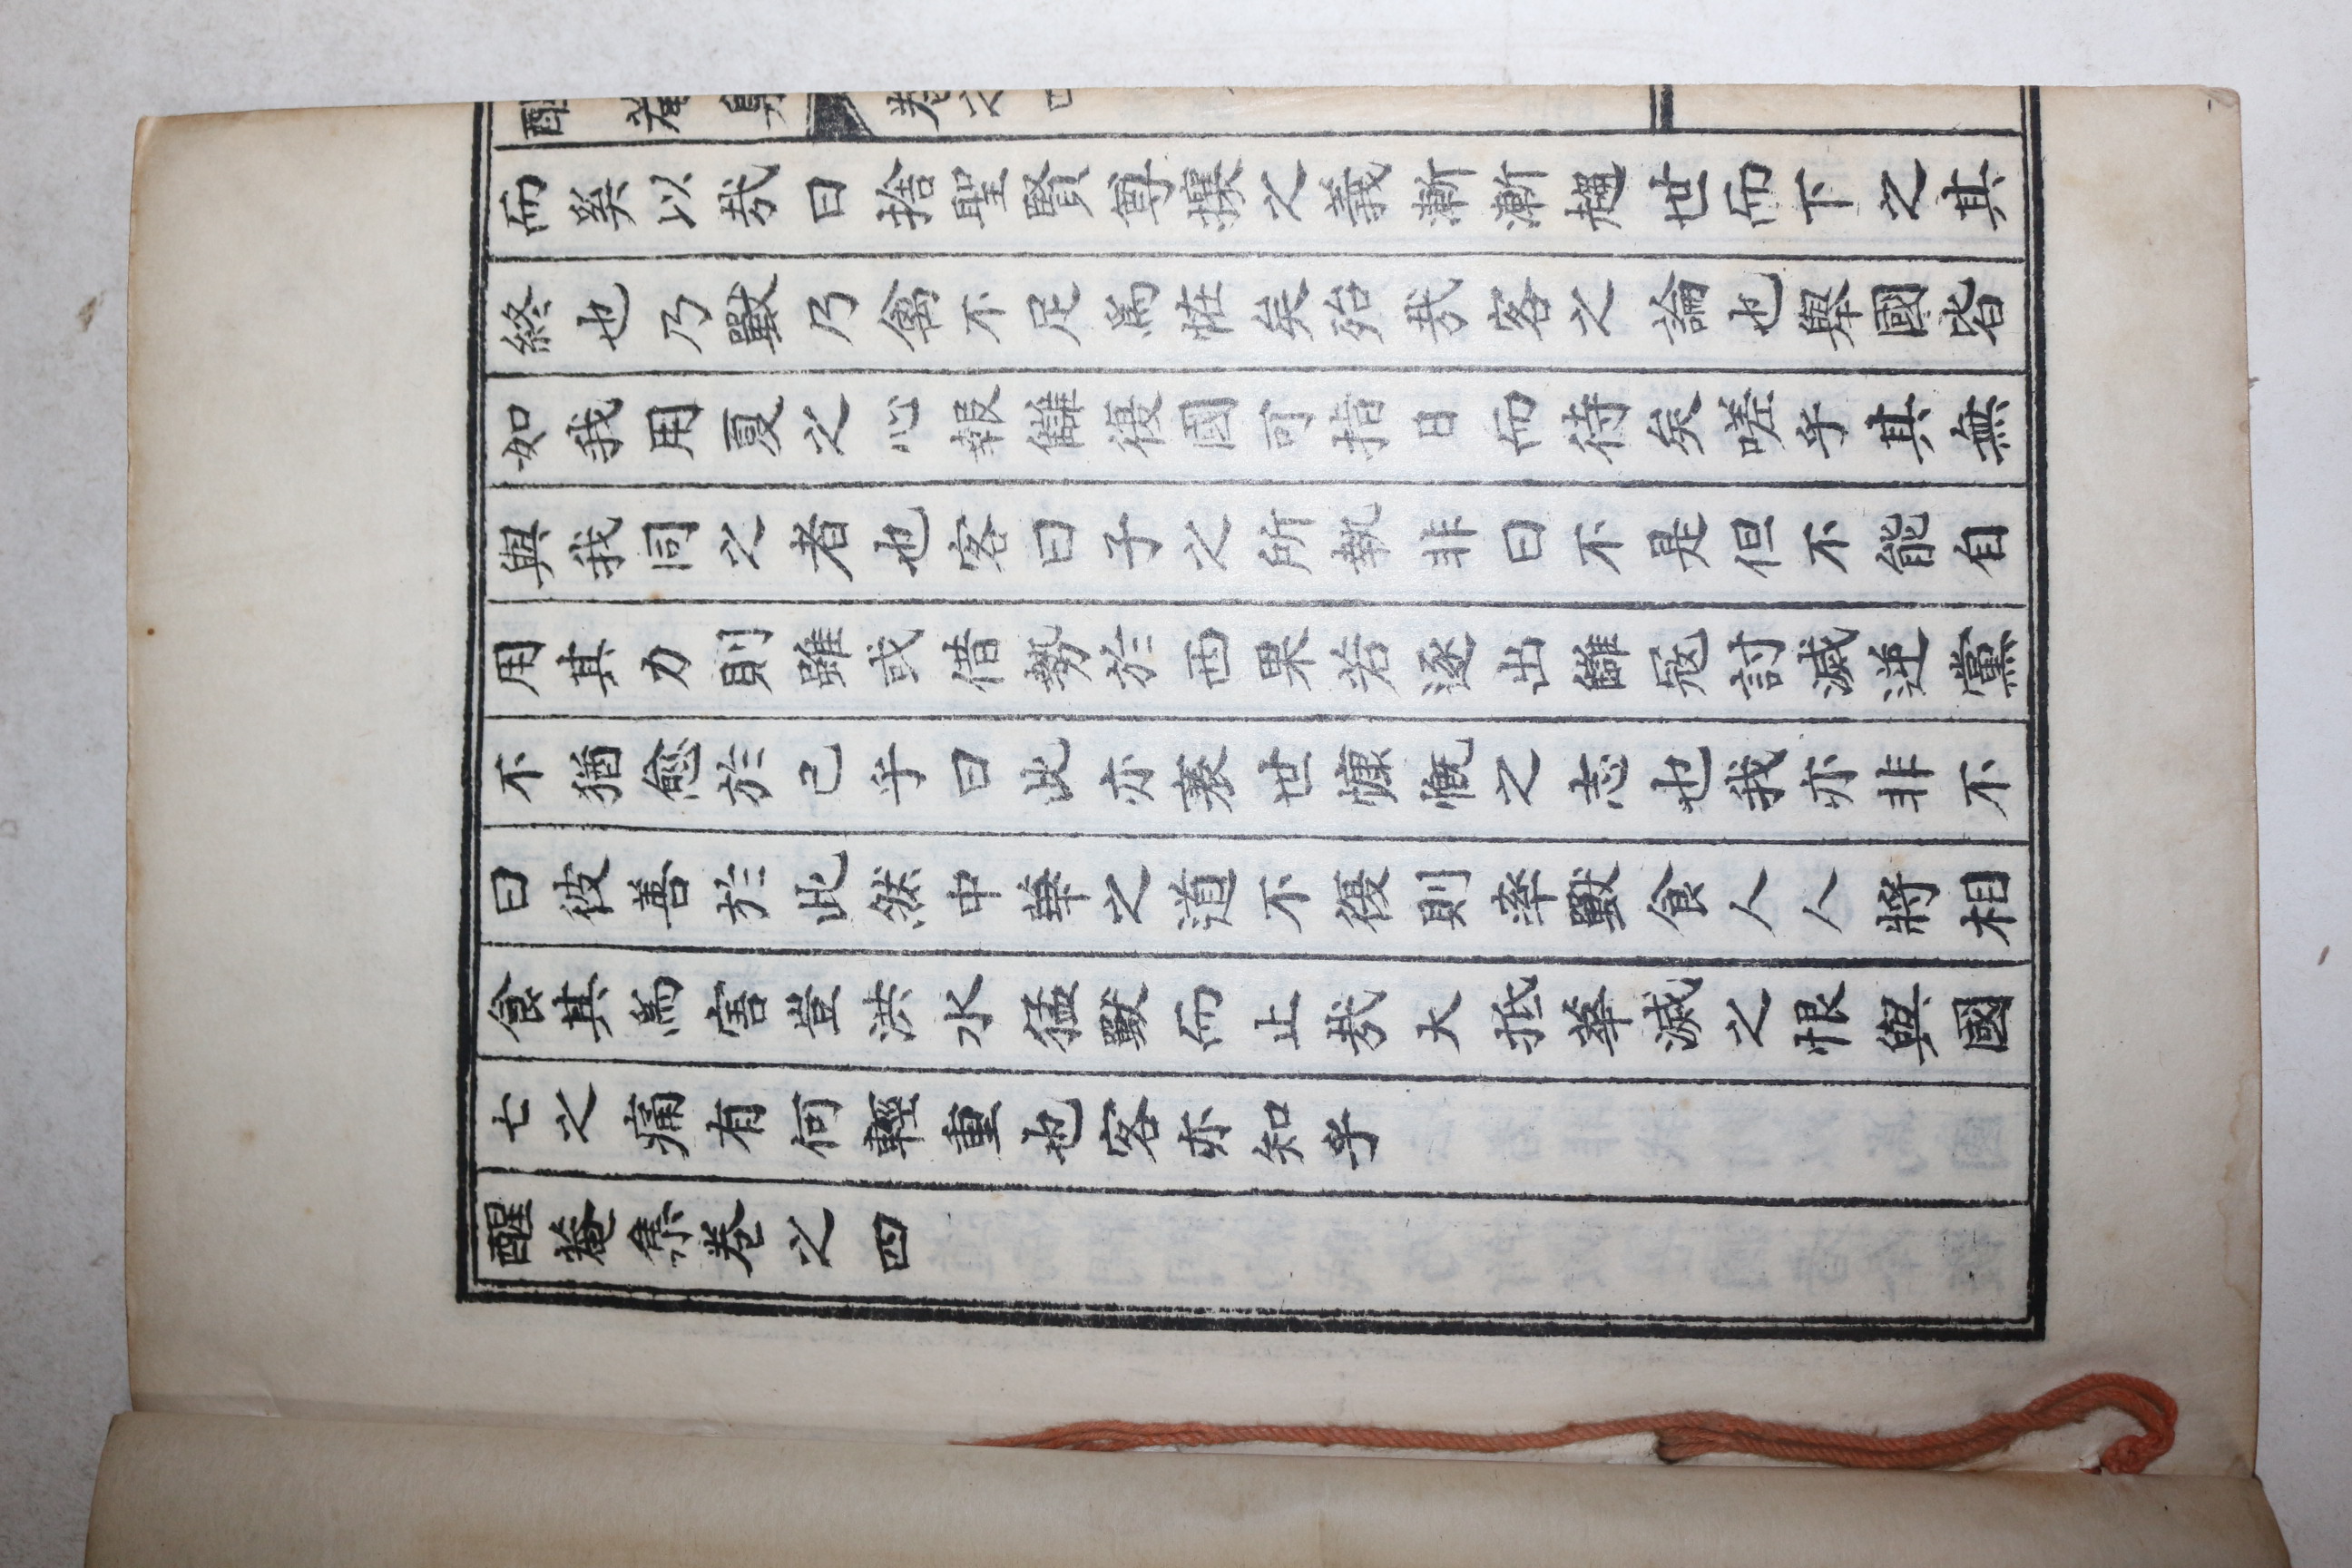 醒菴集 卷之四
而奚以哉曰捨聖賢尊攘之義漸漸趨世而下之其
終也乃獸乃禽不足爲恠矣殆哉客之論也擧國皆
如我用夏之心報讎復國可指日而待矣嗟乎其無
與我同之者也客曰子之所執非曰不是但不能自
用其力則雖或借勢於西果若逐出讎冦討滅逆黨
不猶愈於已乎曰此亦衰世慷慨之志也我亦非不
曰彼善於此然中華之道不復則率獸食人人將相
食其爲害豈洪水猛獸而止哉大抵華滅之恨與國
亡之痛有何輕重也客亦知乎
醒菴集卷之四